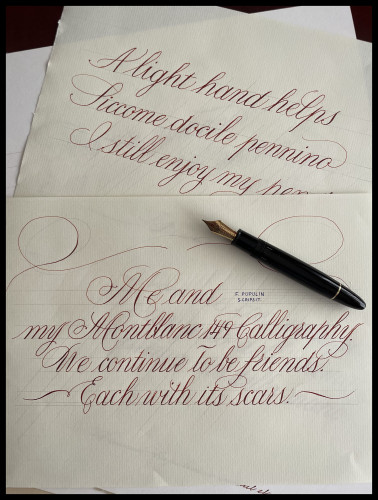 A light hand helps
Siccome docile pennino
I still enjoy my pen
Me and
F. POPULIN
SCRIPSIT.
my Montblanc 149 Calligraphy.
We continue to be friends.
Each with its scars.